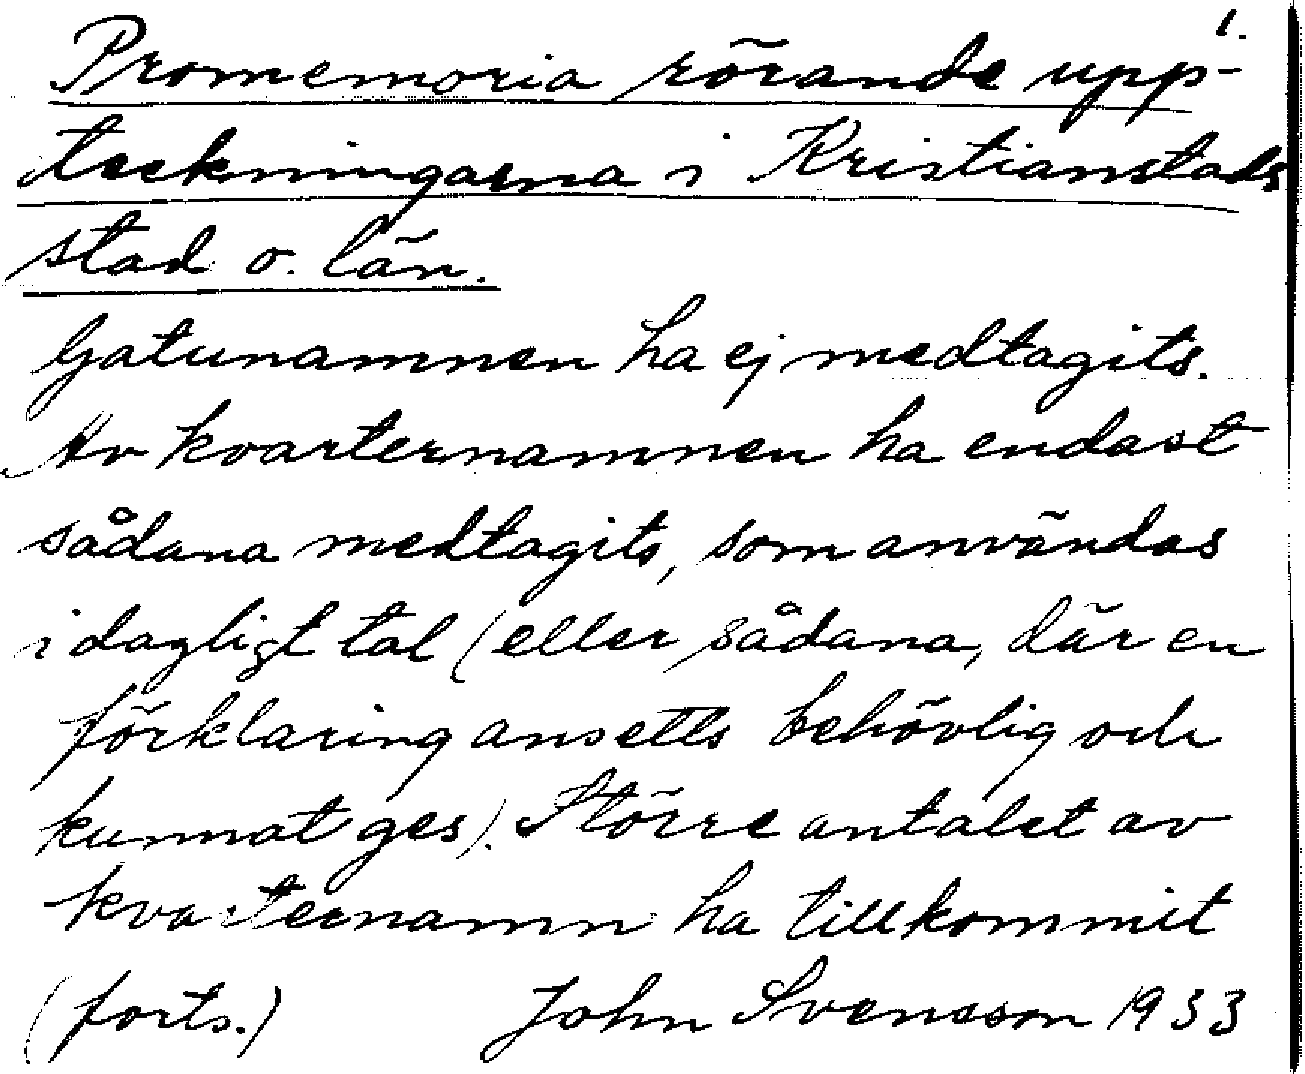 1.
Promemoria rörande upp-
teckningarna i Kristianstads
stad o. län.
Gatunamnen ha ej medtagits.
Av kvarternamnen ha endast
sådana medtagits, som användas
i dagligt tal (eller sådana, där en
förklaring ansetts behövlig och
kunnat ges). Större antalet av
kvarternamn ha tillkommit
(forts.) John Svensson 1933